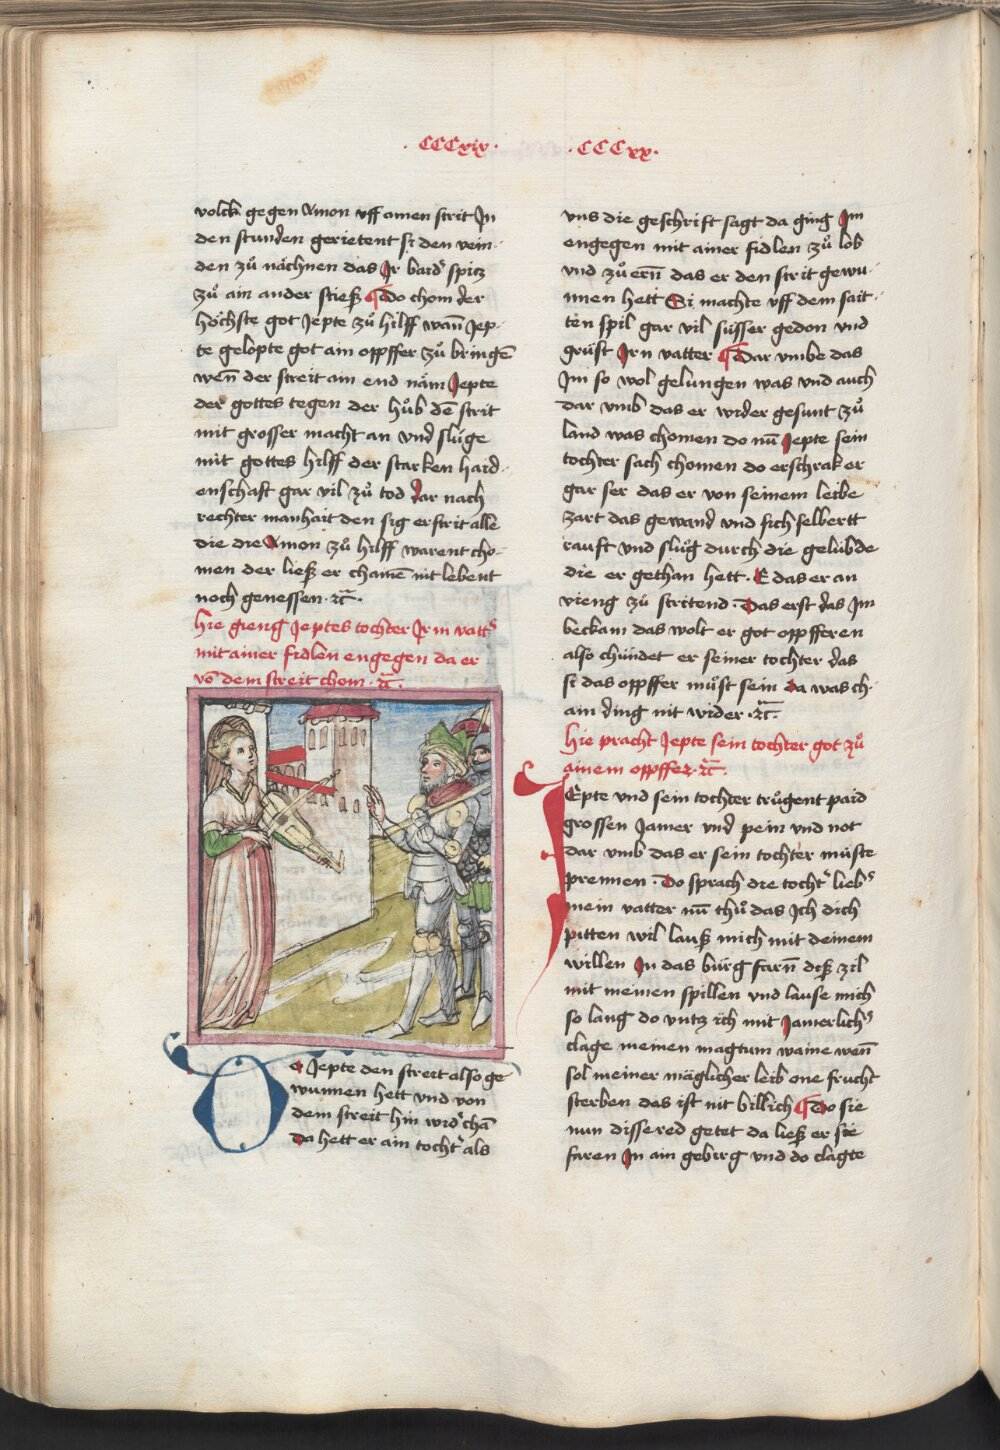 .CCCxix.
volck gegen Amon vff ainen strit Jn
den stunden gerietent si den vein-
den zů nächnen das Jr baid' spitz
zů ain ander stieß ¶ Do chom der
höchste got Jepte zů hilff wañ Jep-
te gelopte got ain oppffer zů bringē
weñ der streit ain end näm Jepte
der gottes tegen der hůb dē strit
mit grosser macht an vnd slůge
mit gottes hilff der starken haid-
enschaft gar vil zů tod dar nach
rechter manhait den sig erstrit alle
die die Amon zů hilff warent cho-
men der ließ er chainē nit lebent
noch genessen .rc̄.
hie gieng Jeptes tochter Jrm vatt'
mit ainer fidlen engegen da er
vō dem streit chom .rc̄.
DO Jepte den streit also ge
wunnen hett vnd von
dem streit hin wid' chā
Da hett er ain tocht' als
.CCCxx.
vns die geschrift sagt da ging Jm
engegen mit ainer fidlen zů lob
vnd zů ern̄ das er den strit gewu-
nnen hett Si machte vff dem sait-
ten spil gar vil süsser gedon vnd
grüst Jrn vatter ¶ Dar vmbe das
Jm so wol gelungen was vnd auch
dar vmb das er wider gesunt zů
land was chomen do nū Jepte sein
tochter sach chomen do erschrak er
gar ser das er von seinem leibe
zart das gewand vnd sich selbertt
rauft vnd slůg durch die gelübde
die er gethan hett . E das er an
vieng zů stritend . Das erst das Jm
beckam das wolt er got oppfferen
also chündet er seiner tochter das
si das oppffer můst sein da was ch-
ain ding nit wider .rc̄.
hie pracht Jepte sein tochter got zů
ainem oppffer .rc̄.
JEpte vnd sein tochter trůgent paid
grossen Jamer vnd pein vnd not
dar vmb das er sein tochter müste
prennen . Do sprach die tocht' lieb'
mein vatter nū thů das Jch dich
pitten wil lauß mich mit deinem
willen Jn das bürg farn̄ diß zil
mit meinen spillen vnd lause mich
so lang do vntz ich mit Jamerlich'
clage meinen magtum waine weñ
sol meiner mäglicher leib one frucht
sterben das ist nit billich ¶ Do sie
nun disse red getet da ließ er sie
faren Jn ain gebirg vnd do clagte